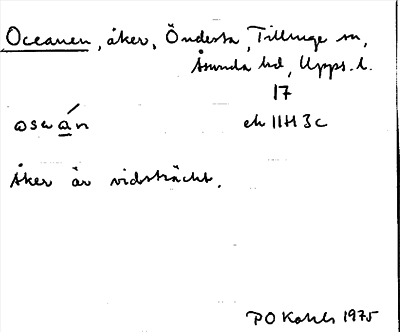 Oceanen, åker, Öndersta, Tillinge sn,
Åsunda hd, Upps. l.
17
ek 11H 3c
Åker är vidsträckt.
1975